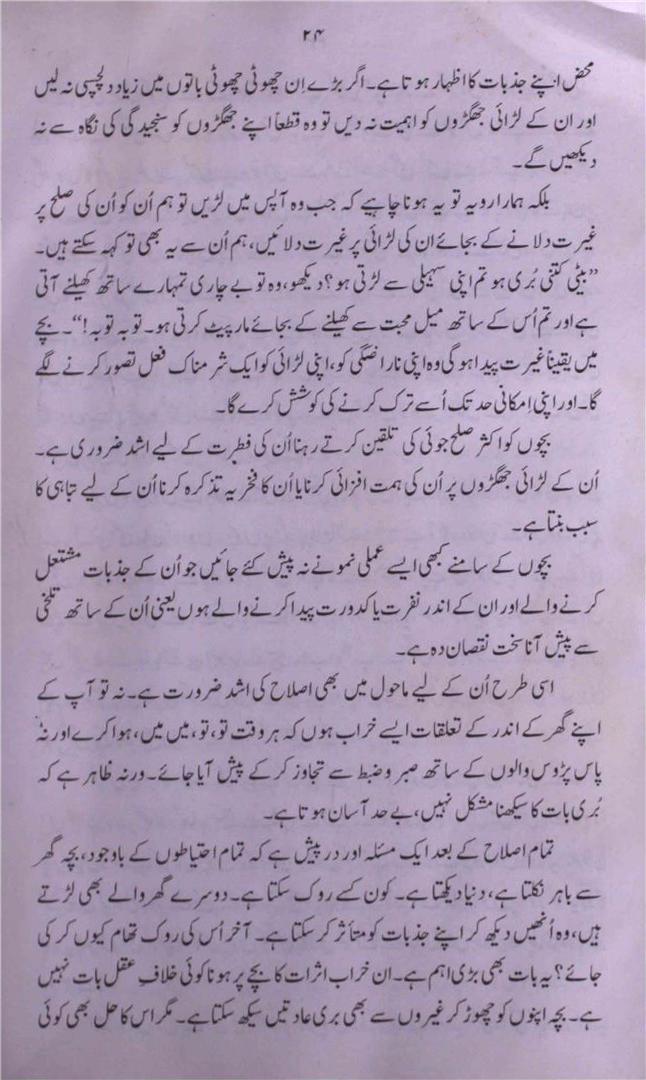 ۲۴
محض اپنے جذبات کا اظہار ہوتا ہے۔ اگر بڑے اِن چھوٹی چھوٹی باتوں میں زیادہ دلچسپی نہ لیں
اور ان کے لڑائی جھگڑوں کو اہمیت نہ دیں تو وہ قطعاً اپنے جھگڑوں کو سنجیدگی کی نگاہ سے نہ
دیکھیں گے۔
بلکہ ہمارا رویہ تو یہ ہونا چاہیے کہ جب وہ آپس میں لڑیں تو ہم اُن کو اُن کی صلح پر
غیرت دلانے کے بجائے ان کی لڑائی پر غیرت دلائیں، ہم اُن سے یہ بھی تو کہہ سکتے ہیں۔
”بیٹی کتنی بُری ہو تم اپنی سہیلی سے لڑتی ہو؟ دیکھو، وہ تو بے چاری تمہارے ساتھ کھیلنے آتی
ہے اور تم اُس کے ساتھ میل محبت سے کھیلنے کے بجائے مار پیٹ کرتی ہو۔ توبہ توبہ!“۔ بچے
میں یقیناً غیرت پیدا ہوگی وہ اپنی ناراضگی کو، اپنی لڑائی کو ایک شرمناک فعل تصور کرنے لگے
گا۔ اور اپنی اِمکانی حد تک اُسے ترک کرنے کی کوشش کرے گا۔
بچوں کو اکثر صلح جوئی کی تلقین کرتے رہنا اُن کی فطرت کے لیے اشد ضروری ہے۔
اُن کے لڑائی جھگڑوں پر اُن کی ہمت افزائی کرنا یا اُن کا فخریہ تذکرہ کرنا اُن کے لیے تباہی کا
سبب بنتا ہے۔
بچوں کے سامنے کبھی ایسے عملی نمونے نہ پیش کئے جائیں جو اُن کے جذبات مشتعل
کرنے والے اور ان کے اندر نفرت یا کدورت پیدا کرنے والے ہوں یعنی اُن کے ساتھ تلخی
سے پیش آنا سخت نقصان دہ ہے۔
اسی طرح اُن کے لیے ماحول میں بھی اصلاح کی اشد ضرورت ہے۔ نہ تو آپ کے
اپنے گھر کے اندر کے تعلقات ایسے خراب ہوں کہ ہر وقت تو، تو، میں میں، ہوا کرے اور نہ
پاس پڑوس والوں کے ساتھ صبر و ضبط سے تجاوز کر کے پیش آیا جائے۔ ورنہ ظاہر ہے کہ
بُری بات کا سیکھنا مشکل نہیں، بے حد آسان ہوتا ہے۔
تمام اصلاح کے بعد ایک مسئلہ اور درپیش ہے کہ تمام احتیاطوں کے باوجود، بچہ گھر
سے باہر نکلتا ہے، دنیا دیکھتا ہے۔ کون کسے روک سکتا ہے۔ دوسرے گھر والے بھی لڑتے
ہیں، وہ اُنھیں دیکھ کر اپنے جذبات کو متأثر کر سکتا ہے۔ آخر اُس کی روک تھام کیوں کر کی
جائے؟ یہ بات بھی بڑی اہم ہے۔ ان خراب اثرات کا بچے پر ہونا کوئی خلافِ عقل بات نہیں
ہے۔ بچہ اپنوں کو چھوڑ کر غیروں سے بھی بری عادتیں سیکھ سکتا ہے۔ مگر اس کا حل بھی کوئی